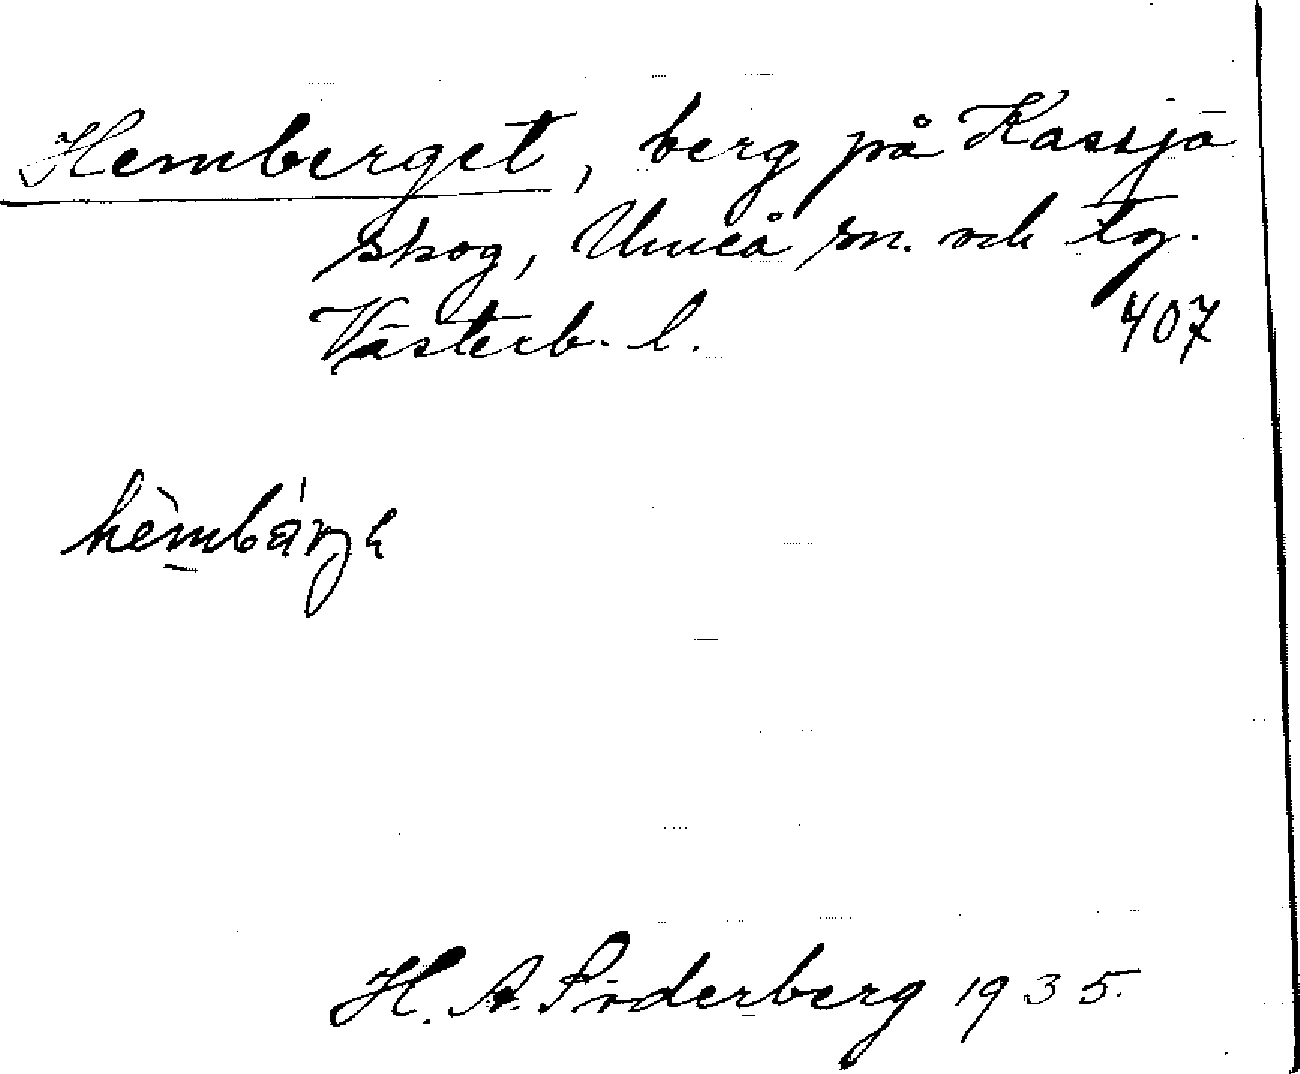 Hemberget, berg på Kassjö
skog, Umeå sn. och tg.
Västerb. l. 407
hèmbárjɐ
H. A. Söderberg 1935.